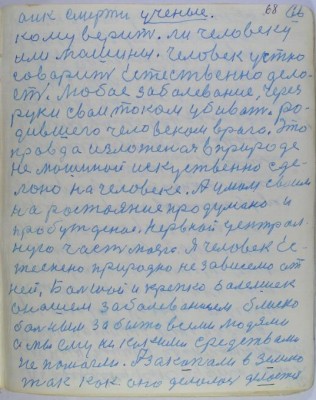 аик смерти ученые. 68
кому верит. ли человеку
или машины. Человек устно
говарит Естественно дело-
ет. Любое заболевание. Через
руки своим током убивает. ро-
дившего человеком врага. Это
правда изложеная в природе
не машиной искуственно сде-
лоно на человеке. А умом своим
на растояние продумано и
пробуждено. Нервной централ
ную часть моего. Я человек Ес-
теснено природно не зависемо от
ней. Болшой и крепко болеющем
заболеванием близко
болным забыто всеми людями
а мы ему ни какими средствами
не помогли. А закапали в землю
так как оно делолос делается